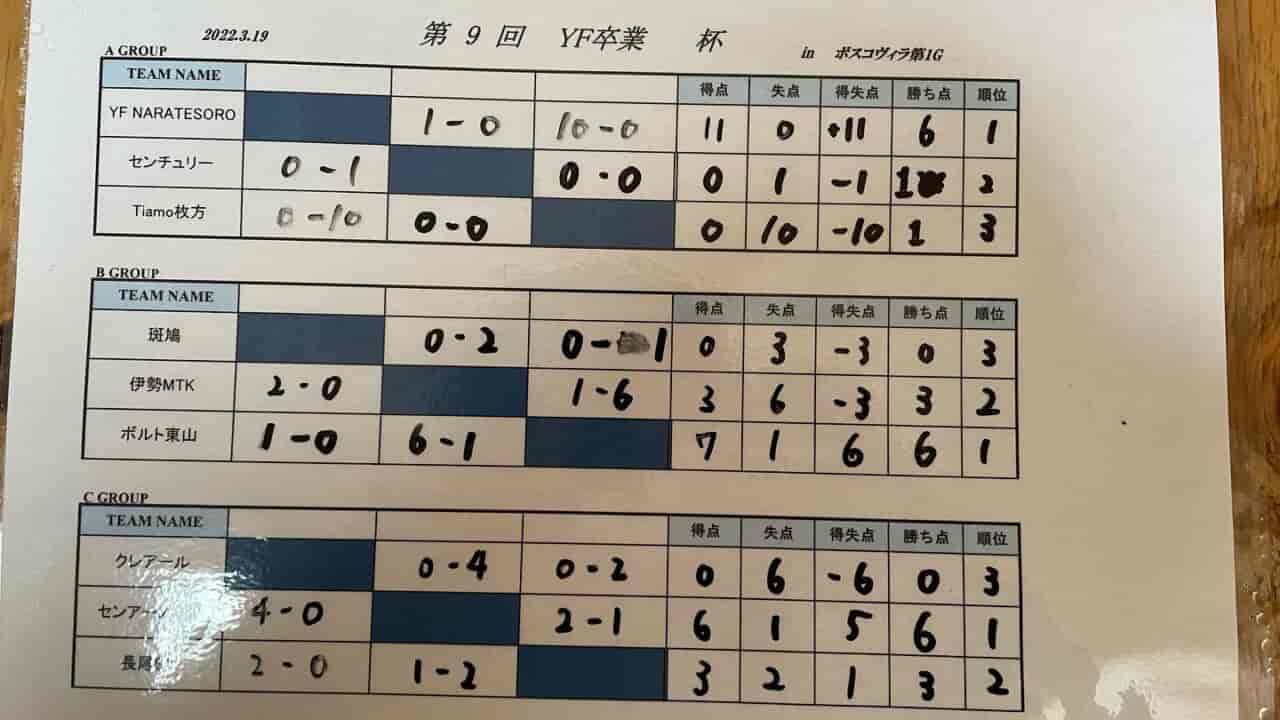 2022.3.19 第 9 回 YF卒業 杯 in ボスコヴィラ第1G
A GROUP
TEAM NAME 得点 失点 得失点 勝ち点 順位
YF NARATESORO 1-0 10-0 11 0 +11 6 1
センチュリー 0-1 0-0 0 1 -1 1 2
Tiamo枚方 0-10 0-0 0 10 -10 1 3
B GROUP
TEAM NAME 得点 失点 得失点 勝ち点 順位
斑鳩 0-2 0-1 0 3 -3 0 3
伊勢MTK 2-0 1-6 3 6 -3 3 2
ボルト東山 1-0 6-1 7 1 6 6 1
C GROUP
TEAM NAME 得点 失点 得失点 勝ち点 順位
クレアール 0-4 0-2 0 6 -6 0 3
センアーノ 4-0 2-1 6 1 5 6 1
長尾 2-0 1-2 3 2 1 3 2